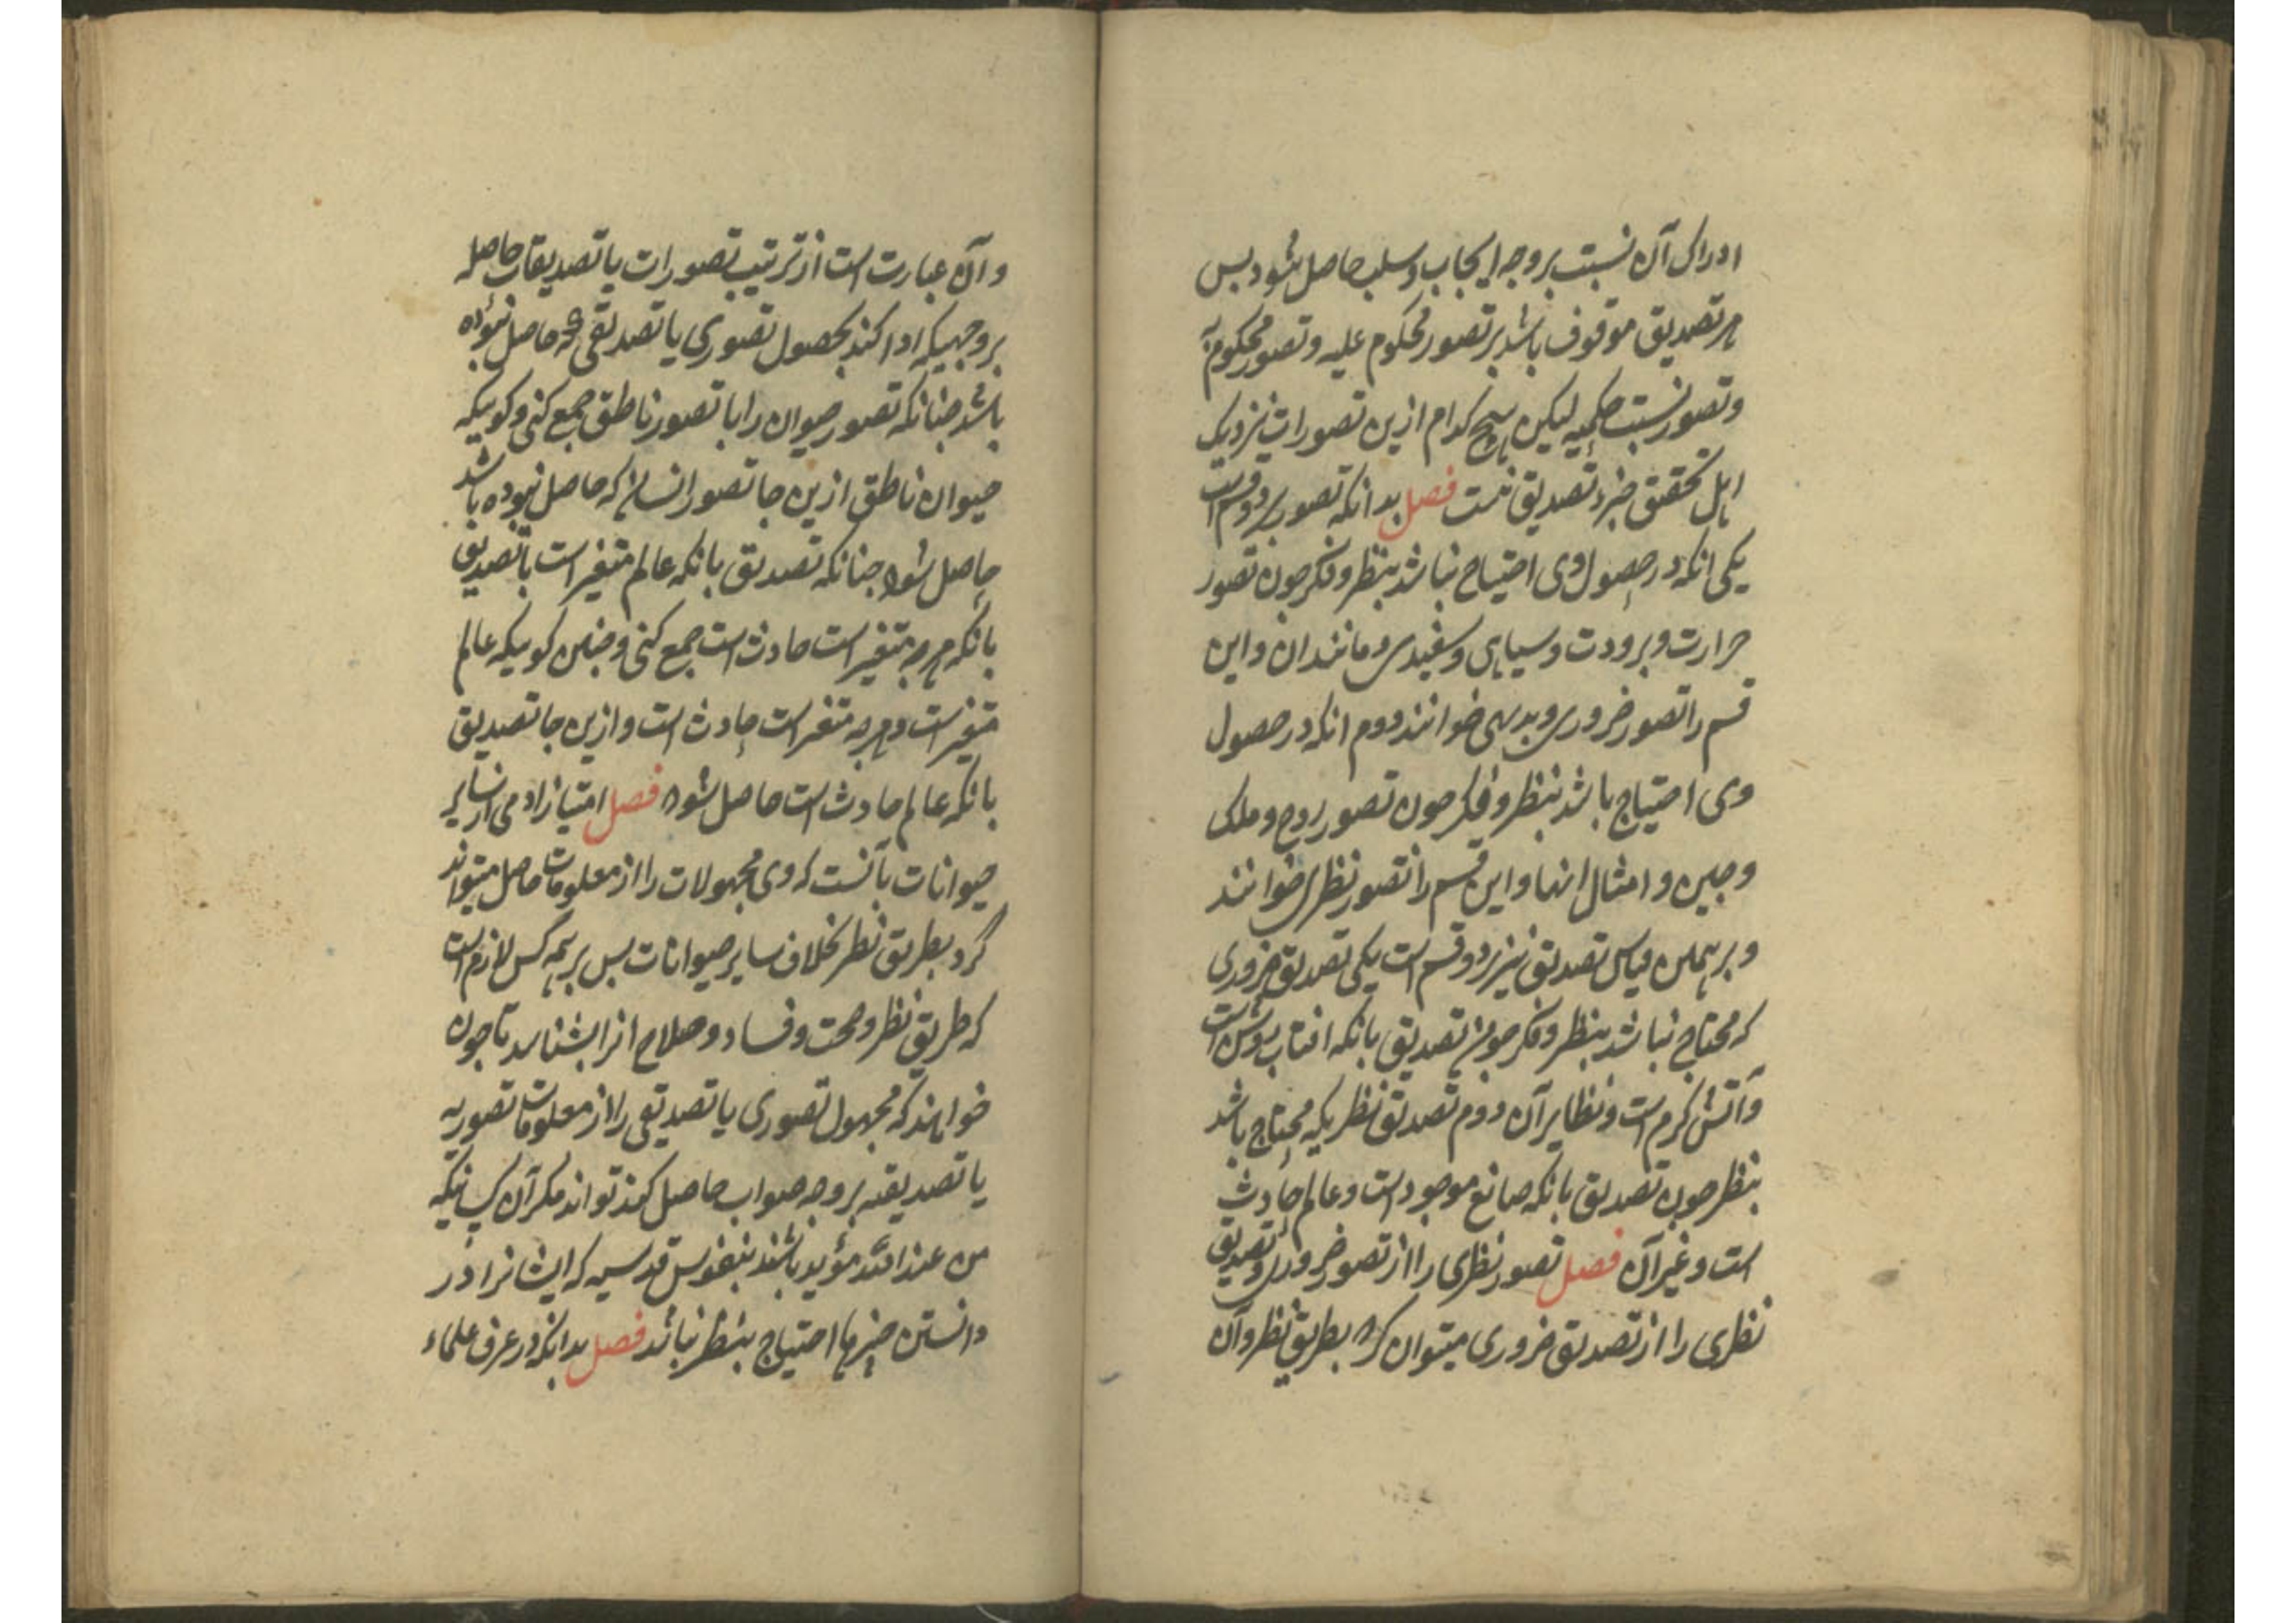 ادراک آن نسبت بروجه ایجاب و سلب حاصل شود بس
هر تصدیق موقوف باشد بر تصور محکوم علیه و تصور محکوم به
و تصور نسبت حکمیه لیکن هیچ کدام ازین تصورات نزدیک
اهل تحقیق جزء تصدیق نیست فصل بدانکه تصور بر دو قسم است
یکی انکه در حصول وی احتیاج نباشد بنظر و فکر جون تصور
حرارت و برودت و سیاهی و سفیدی و مانند ان و این
قسم را تصور ضروری و بدیهی خوانند دوم انکه در حصول
وی احتیاج باشد بنظر و فکر جون تصور روح و ملک
و جن و امثال انها و این قسم را تصور نظری خوانند
و بر همین قیاس تصدیق نیز بر دو قسم است یکی تصدیق ضروری
که محتاج نباشد بنظر و فکر جون تصدیق بانکه افتاب روشن است
و آتش کرم است و نظایر آن دوم تصدیق نظریکه محتاج باشد
بنظر جون تصدیق بانکه صانع موجود است و عالم حادث
است و غیر آن فصل تصور نظری را از تصور ضروری و تصدیق
نظری را از تصدیق ضروری میتوان کرد بطریق نظر و آن
و آن عبارت است از ترتیب تصورات یا تصدیقات حاصله
بر وجهیکه ادا کند بحصول تصوری یا تصدیقی که حاصل نبوده
باشد جنانکه تصور حیوان را با تصور ناطق جمع کنی و کوییکه
حیوان ناطق ازین جا تصور انسان که حاصل نبوده باشد
حاصل شود جنانکه تصدیق بانکه عالم متغیر است با تصدیق
بانکه هر جه متغیر است حادث است جمع کنی و جنین کوییکه عالم
متغیر است و هر جه متغیر است حادث است و ازین جا تصدیق
بانکه عالم حادث است حاصل شود فصل امتیاز ادمی از سایر
حیوانات بآنست که وی مجهولات را از معلومات حاصل میتواند
کرد بطریق نظر بخلاف سایر حیوانات بس بر همه کس لازم است
که طریق نظر و صحت و فساد و صلاح انرا بشناسد تا جون
خواهند که مجهول تصوری یا تصدیقی را از معلومات تصوریه
یا تصدیقیه بر وجه صواب حاصل کنند توانند مکر آن کسانیکه
من عند الله مؤید باشند بنفوس قدسیه که ایشانرا در
دانستن جیزها احتیاج بنظر نباشد فصل بدانکه در عرف علماء